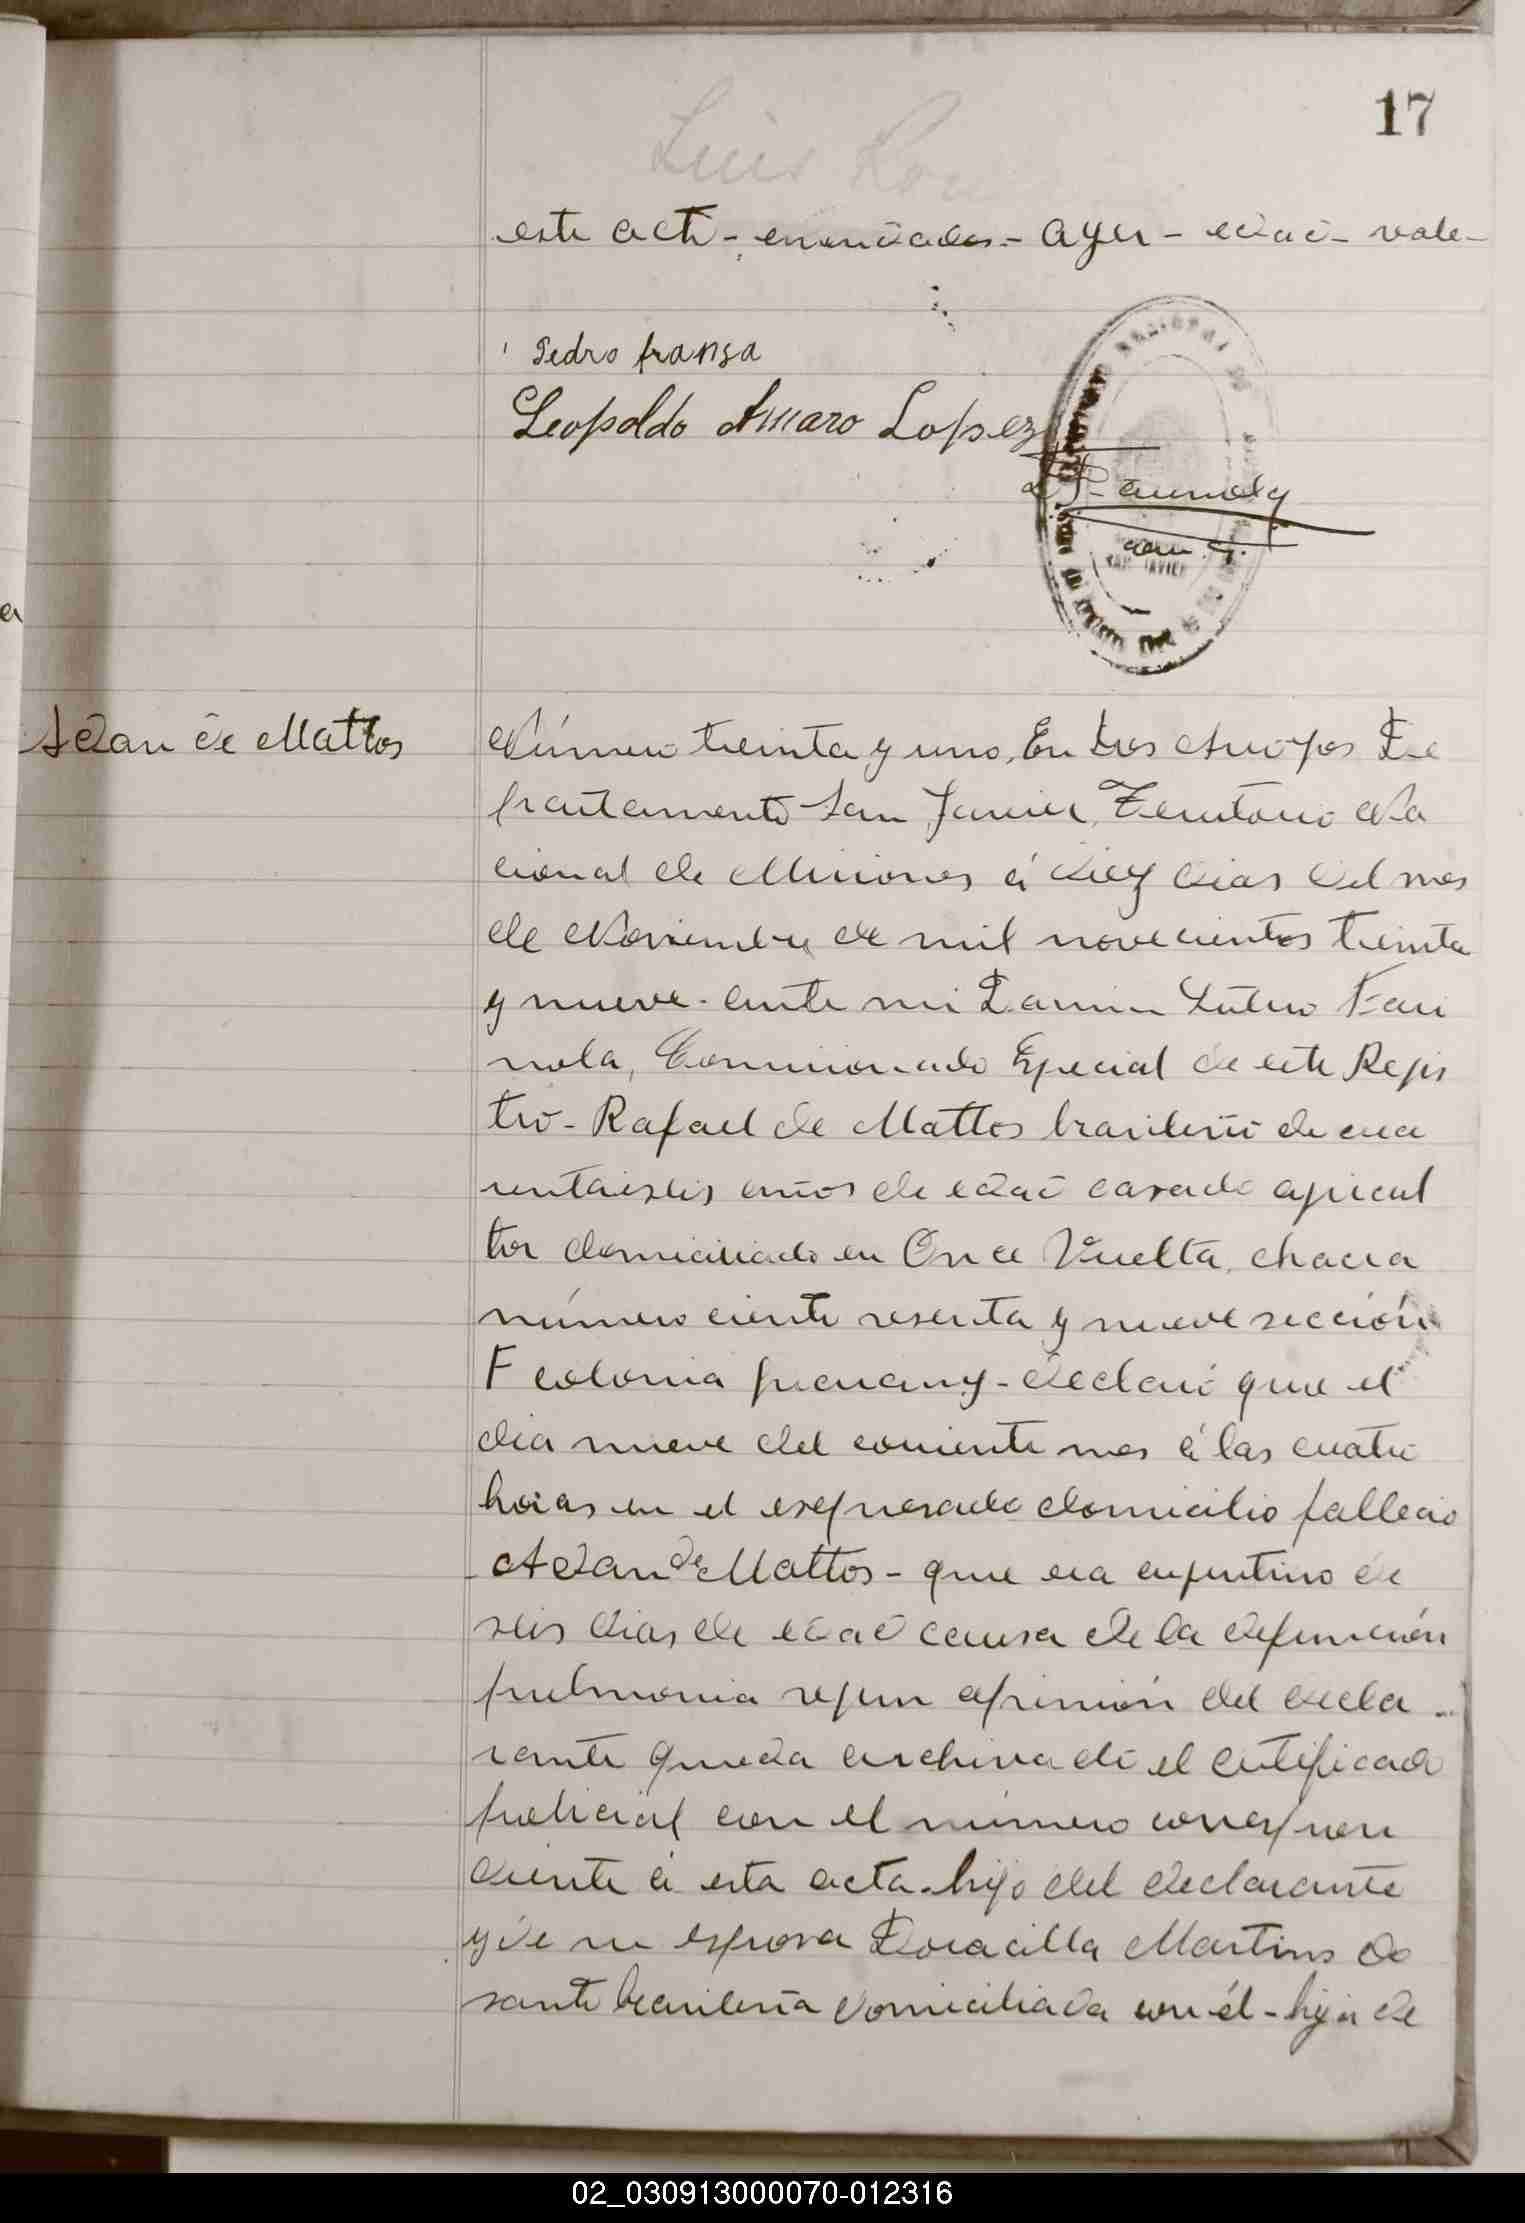 17
Luis
este acto - enmendados - ayer - edad - vale -
Pedro fransa
Leopoldo Amaro Lopez
SAN JAVIER
Adan de Mattos
Número treinta y uno, En Tres Arroyos De
partamento San Javier, Territorio Na
cional de Misiones á diez dias del mes
de Noviembre de mil novecientos treinta
y nueve - ante mi Lutero Fari
nola, Comisionado Especial de este Regis
tro - Rafael de Mattos brasileño de cua
rentaiseis años de edad casado agricul
tor domiciliado en Once Vuelta, chacra
número ciento sesenta y nueve sección
F colonia guarany - declaró que el
dia nueve del corriente mes á las cuatro
horas en el expresado domicilio fallecio
Adan de Mattos - que era argentino de
seis dias de edad causa de la defunción
pulmonia segun opinión del decla
rante queda archivado el certificado
policial con el número correspon
diente á esta acta - hijo del declarante
y de su esposa Doracilla Martins do
santo brasileña domiciliada con él - hija de
02_030913000070-012316